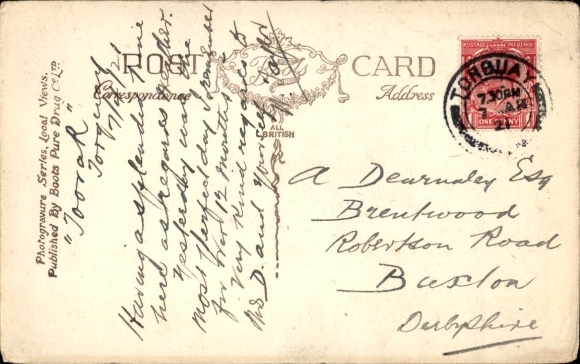 Photogravure Series, Local Views.
Published By Boots Pure Drug Co Ltd.
POST CARD
Boots
Correspondence
Address
ALL
BRITISH
"Toorak"
Torquay
Having a splendid time
here as regards weather.
Yesterday was the
most perfect day I remember
for over 12 months.
Very kind regards to
Mrs D. and yourself
POSTAGE REVENUE
ONE PENNY
TORQUAY
7.30 PM
7 AP
21
A Dearnaley Esq
Brentwood
Robertson Road
Buxton
Derbyshire